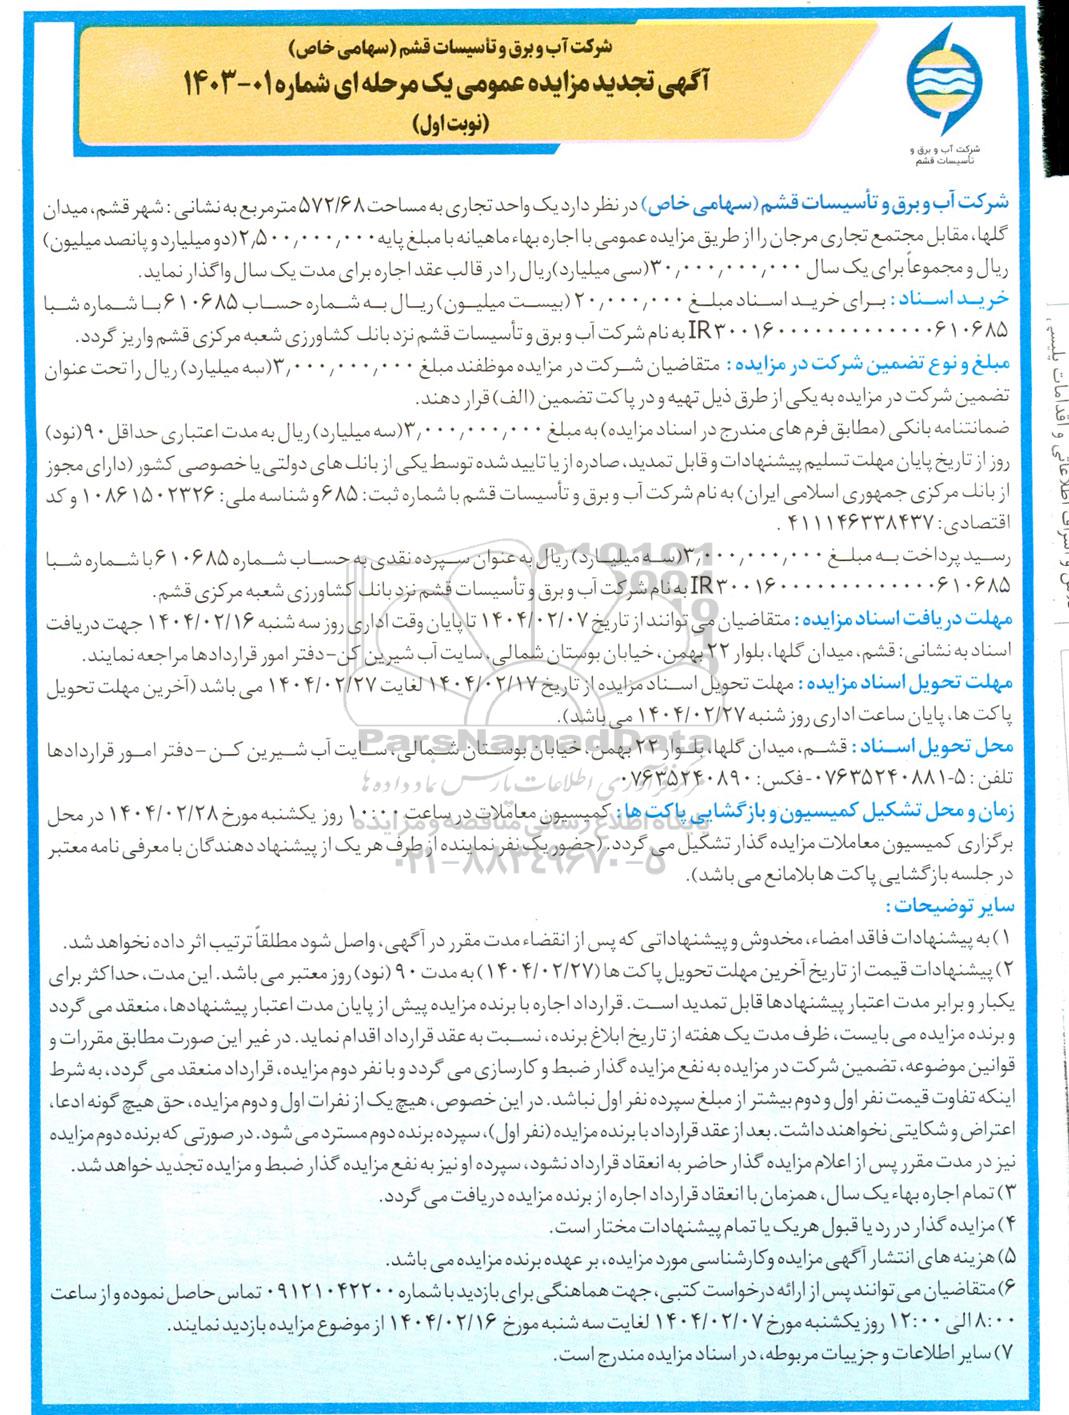 شرکت آب و برق و تأسیسات قشم (سهامی خاص)
آگهی تجدید مزایده عمومی یک مرحله ای شماره ۰۱-۱۴۰۳
(نوبت اول)
شرکت آب و برق و
تأسیسات قشم
شرکت آب و برق و تأسیسات قشم (سهامی خاص) در نظر دارد یک واحد تجاری به مساحت ۵۷۲/۶۸ مترمربع به نشانی : شهر قشم، میدان
گلها، مقابل مجتمع تجاری مرجان را از طریق مزایده عمومی با اجاره بهاء ماهیانه با مبلغ پایه ۲٫۵۰۰٫۰۰۰٫۰۰۰ (دو میلیارد و پانصد میلیون)
ریال و مجموعاً برای یک سال ۳۰٫۰۰۰٫۰۰۰٫۰۰۰ (سی میلیارد) ریال را در قالب عقد اجاره برای مدت یک سال واگذار نماید.
خرید اسناد : برای خرید اسناد مبلغ ۲۰٫۰۰۰٫۰۰۰ (بیست میلیون) ریال به شماره حساب ۶۱۰۶۸۵ با شماره شبا
IR ۳۰۰۱۶۰۰۰۰۰۰۰۰۰۰۰۰۰۶۱۰۶۸۵ به نام شرکت آب و برق و تأسیسات قشم نزد بانک کشاورزی شعبه مرکزی قشم واریز گردد.
مبلغ و نوع تضمین شرکت در مزایده : متقاضیان شرکت در مزایده موظفند مبلغ ۳٫۰۰۰٫۰۰۰٫۰۰۰ (سه میلیارد) ریال را تحت عنوان
تضمین شرکت در مزایده به یکی از طرق ذیل تهیه و در پاکت تضمین (الف) قرار دهند.
ضمانتنامه بانکی (مطابق فرم های مندرج در اسناد مزایده) به مبلغ ۳٫۰۰۰٫۰۰۰٫۰۰۰ (سه میلیارد) ریال به مدت اعتباری حداقل ۹۰ (نود)
روز از تاریخ پایان مهلت تسلیم پیشنهادات و قابل تمدید، صادره از یا تایید شده توسط یکی از بانک های دولتی یا خصوصی کشور (دارای مجوز
از بانک مرکزی جمهوری اسلامی ایران) به نام شرکت آب و برق و تأسیسات قشم با شماره ثبت: ۶۸۵ و شناسه ملی: ۱۰۸۶۱۵۰۲۳۲۶ و کد
اقتصادی: ۴۱۱۱۴۶۳۳۸۴۳۷ .
رسید پرداخت به مبلغ ۳٫۰۰۰٫۰۰۰٫۰۰۰ (سه میلیارد) ریال به عنوان سپرده نقدی به حساب شماره ۶۱۰۶۸۵ با شماره شبا
IR ۳۰۰۱۶۰۰۰۰۰۰۰۰۰۰۰۰۰۶۱۰۶۸۵ به نام شرکت آب و برق و تأسیسات قشم نزد بانک کشاورزی شعبه مرکزی قشم.
مهلت دریافت اسناد مزایده : متقاضیان می توانند از تاریخ ۱۴۰۴/۰۲/۰۷ تا پایان وقت اداری روز سه شنبه ۱۴۰۴/۰۲/۱۶ جهت دریافت
اسناد به نشانی: قشم، میدان گلها، بلوار ۲۲ بهمن، خیابان بوستان شمالی، سایت آب شیرین کن-دفتر امور قراردادها مراجعه نمایند.
مهلت تحویل اسناد مزایده : مهلت تحویل اسناد مزایده از تاریخ ۱۴۰۴/۰۲/۱۷ لغایت ۱۴۰۴/۰۲/۲۷ می باشد (آخرین مهلت تحویل
پاکت ها، پایان ساعت اداری روز شنبه ۱۴۰۴/۰۲/۲۷ می باشد).
محل تحویل اسناد : قشم، میدان گلها، بلوار ۲۲ بهمن، خیابان بوستان شمالی، سایت آب شیرین کن -دفتر امور قراردادها
تلفن : ۵-۰۷۶۳۵۲۴۰۸۸۱-فکس: ۰۷۶۳۵۲۴۰۸۹۰
زمان و محل تشکیل کمیسیون و بازگشایی پاکت ها : کمیسیون معاملات در ساعت ۱۰:۰۰ روز یکشنبه مورخ ۱۴۰۴/۰۲/۲۸ در محل
برگزاری کمیسیون معاملات مزایده گذار تشکیل می گردد. (حضور یک نفر نماینده از طرف هر یک از پیشنهاد دهندگان با معرفی نامه معتبر
در جلسه بازگشایی پاکت ها بلامانع می باشد).
سایر توضیحات :
۱) به پیشنهادات فاقد امضاء، مخدوش و پیشنهاداتی که پس از انقضاء مدت مقرر در آگهی، واصل شود مطلقاً ترتیب اثر داده نخواهد شد.
۲) پیشنهادات قیمت از تاریخ آخرین مهلت تحویل پاکت ها (۱۴۰۴/۰۲/۲۷) به مدت ۹۰ (نود) روز معتبر می باشد. این مدت، حداکثر برای
یکبار و برابر مدت اعتبار پیشنهادها قابل تمدید است. قرارداد اجاره با برنده مزایده پیش از پایان مدت اعتبار پیشنهادها، منعقد می گردد
و برنده مزایده می بایست، ظرف مدت یک هفته از تاریخ ابلاغ برنده، نسبت به عقد قرارداد اقدام نماید. در غیر این صورت مطابق مقررات و
قوانین موضوعه، تضمین شرکت در مزایده به نفع مزایده گذار ضبط و کارسازی می گردد و با نفر دوم مزایده، قرارداد منعقد می گردد، به شرط
اینکه تفاوت قیمت نفر اول و دوم بیشتر از مبلغ سپرده نفر اول نباشد. در این خصوص، هیچ یک از نفرات اول و دوم مزایده، حق هیچ گونه ادعا،
اعتراض و شکایتی نخواهند داشت. بعد از عقد قرارداد با برنده مزایده (نفر اول)، سپرده برنده دوم مسترد می شود. در صورتی که برنده دوم مزایده
نیز در مدت مقرر پس از اعلام مزایده گذار حاضر به انعقاد قرارداد نشود، سپرده او نیز به نفع مزایده گذار ضبط و مزایده تجدید خواهد شد.
۳) تمام اجاره بهاء یک سال، همزمان با انعقاد قرارداد اجاره از برنده مزایده دریافت می گردد.
۴) مزایده گذار در رد یا قبول هر یک یا تمام پیشنهادات مختار است.
۵) هزینه های انتشار آگهی مزایده و کارشناسی مورد مزایده، بر عهده برنده مزایده می باشد.
۶) متقاضیان می توانند پس از ارائه درخواست کتبی، جهت هماهنگی برای بازدید با شماره ۰۹۱۲۱۰۴۲۲۰۰ تماس حاصل نموده و از ساعت
۸:۰۰ الی ۱۲:۰۰ روز یکشنبه مورخ ۱۴۰۴/۰۲/۰۷ لغایت سه شنبه مورخ ۱۴۰۴/۰۲/۱۶ از موضوع مزایده بازدید نمایند.
۷) سایر اطلاعات و جزییات مربوطه، در اسناد مزایده مندرج است.
ParsNamadData
مرکز فرآوری اطلاعات پارس نماد داده ها
پایگاه اطلاع رسانی مناقصه و مزایده
۰۲۱-۸۸۳۴۹۶۷۰-۵